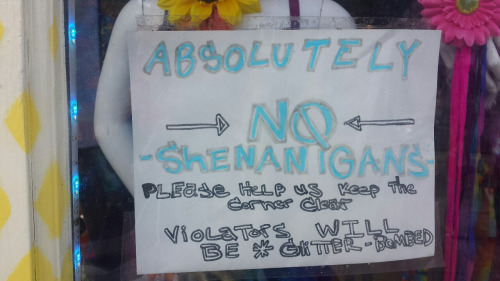 ABSOLUTELY
NO
-SHENANIGANS-
PLEASE HELP US KEEP THE
CORNER CLEAR
VIOLATORS WILL
BE * GLITTER-BOMBED